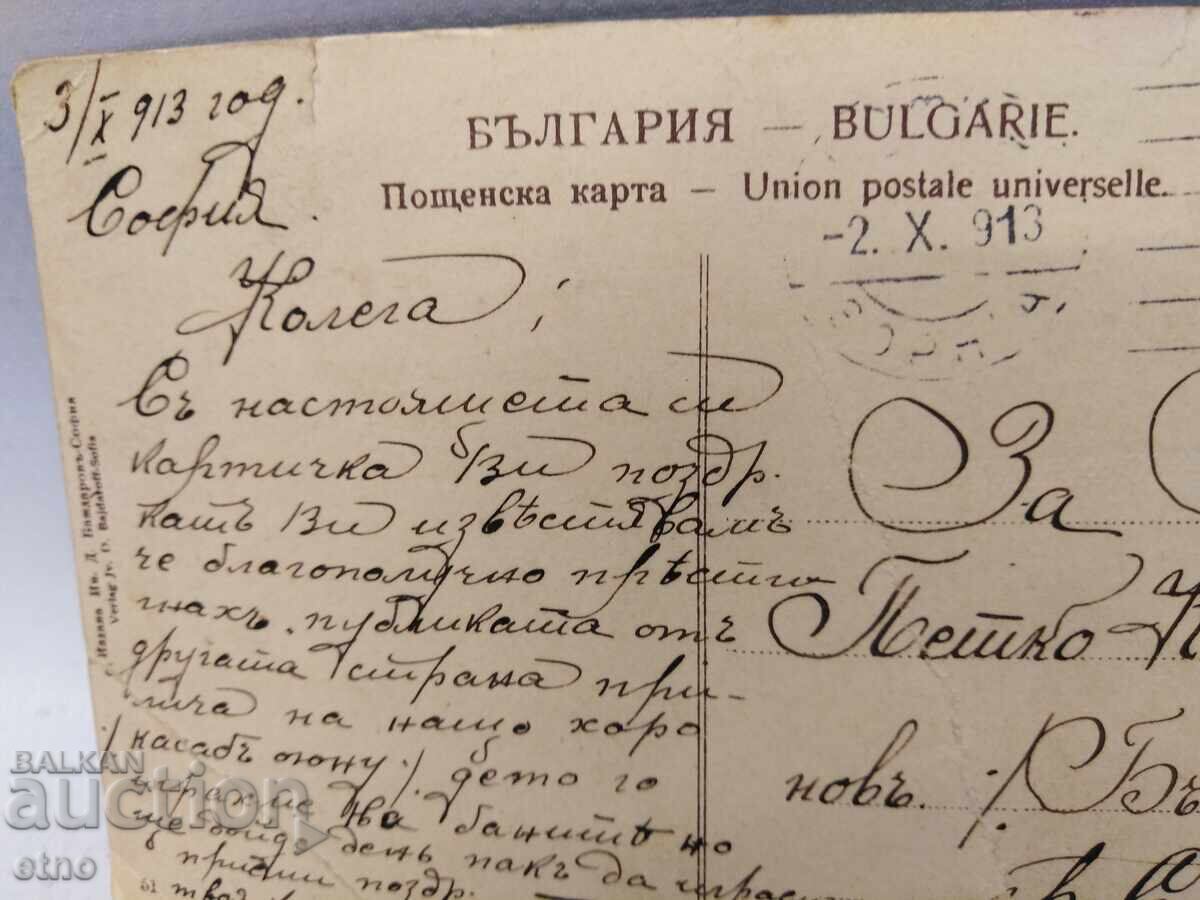 3/X 913 год.
София.
БЪЛГАРИЯ — BULGARIE.
Пощенска карта — Union postale universelle.
-2. X. 913
Колега,
Съ настоящета си
картичка Ви поздр.
катъ Ви извѣстявамъ
че благополучно прѣсти-
гнахъ. публиката отъ
другата страна при-
лича на нашо хоро
/касабъ оюну/ дето го
играхме на банитѣ но
ще дойде день пакъ да играем
приеми поздр.
За
Петко
новъ. /Бъ
Издава Ив. Д. Баждаровъ-София
verlag Jv. D. Bajdaroff-Sofia
51
BALKAN
auction
etno